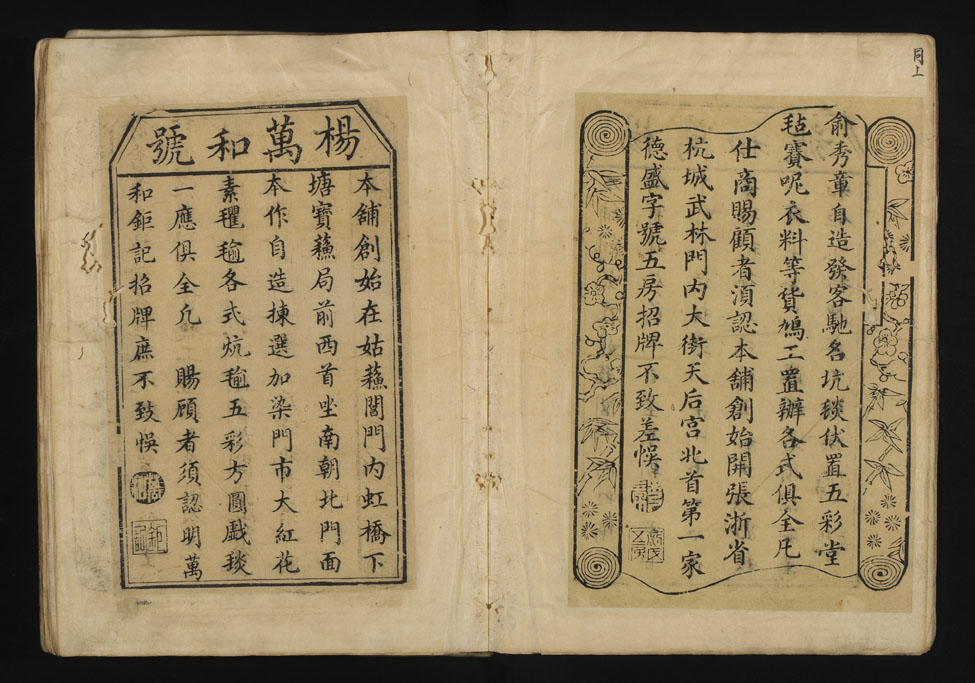 同上
俞秀章自造發客馳名坑毯伏置五彩堂
毡賽呢衣料等貨鳩工置辦各式俱全凡
仕商賜顧者須認本舖創始開張浙省
杭城武林門內大街天后宮北首第一家
德盛字號五房招牌不致差悞
楊萬和號
本舖創始在姑蘇閶門內虹橋下
塘寶蘇局前西首坐南朝北門面
本作自造揀選加染門市大紅花
素氍毺各式炕毺五彩方圓戲毯
一應俱全凡 賜顧者須認明萬
和鉅記招牌庶不致悞